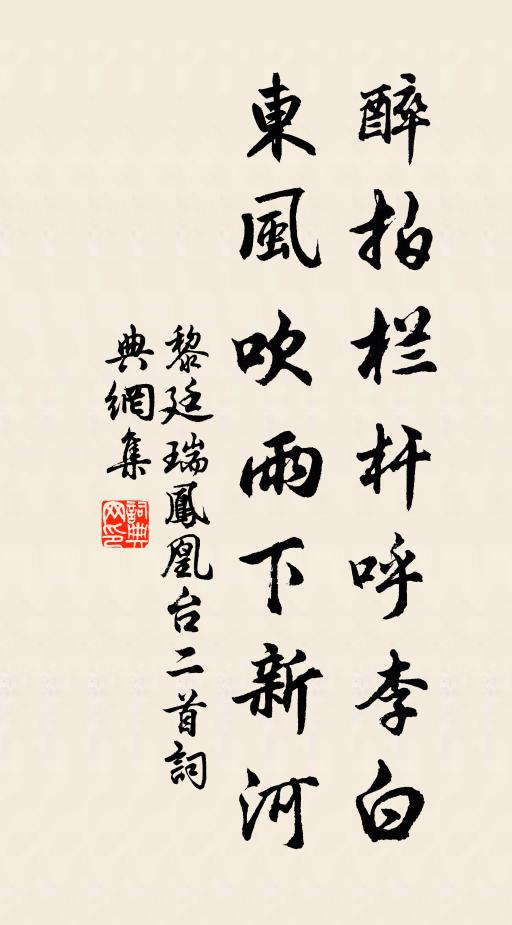 醉拍栏杆呼李白
東風吹雨下新河
黎廷瑞鳳凰台二首詞
典網集
詞典网印